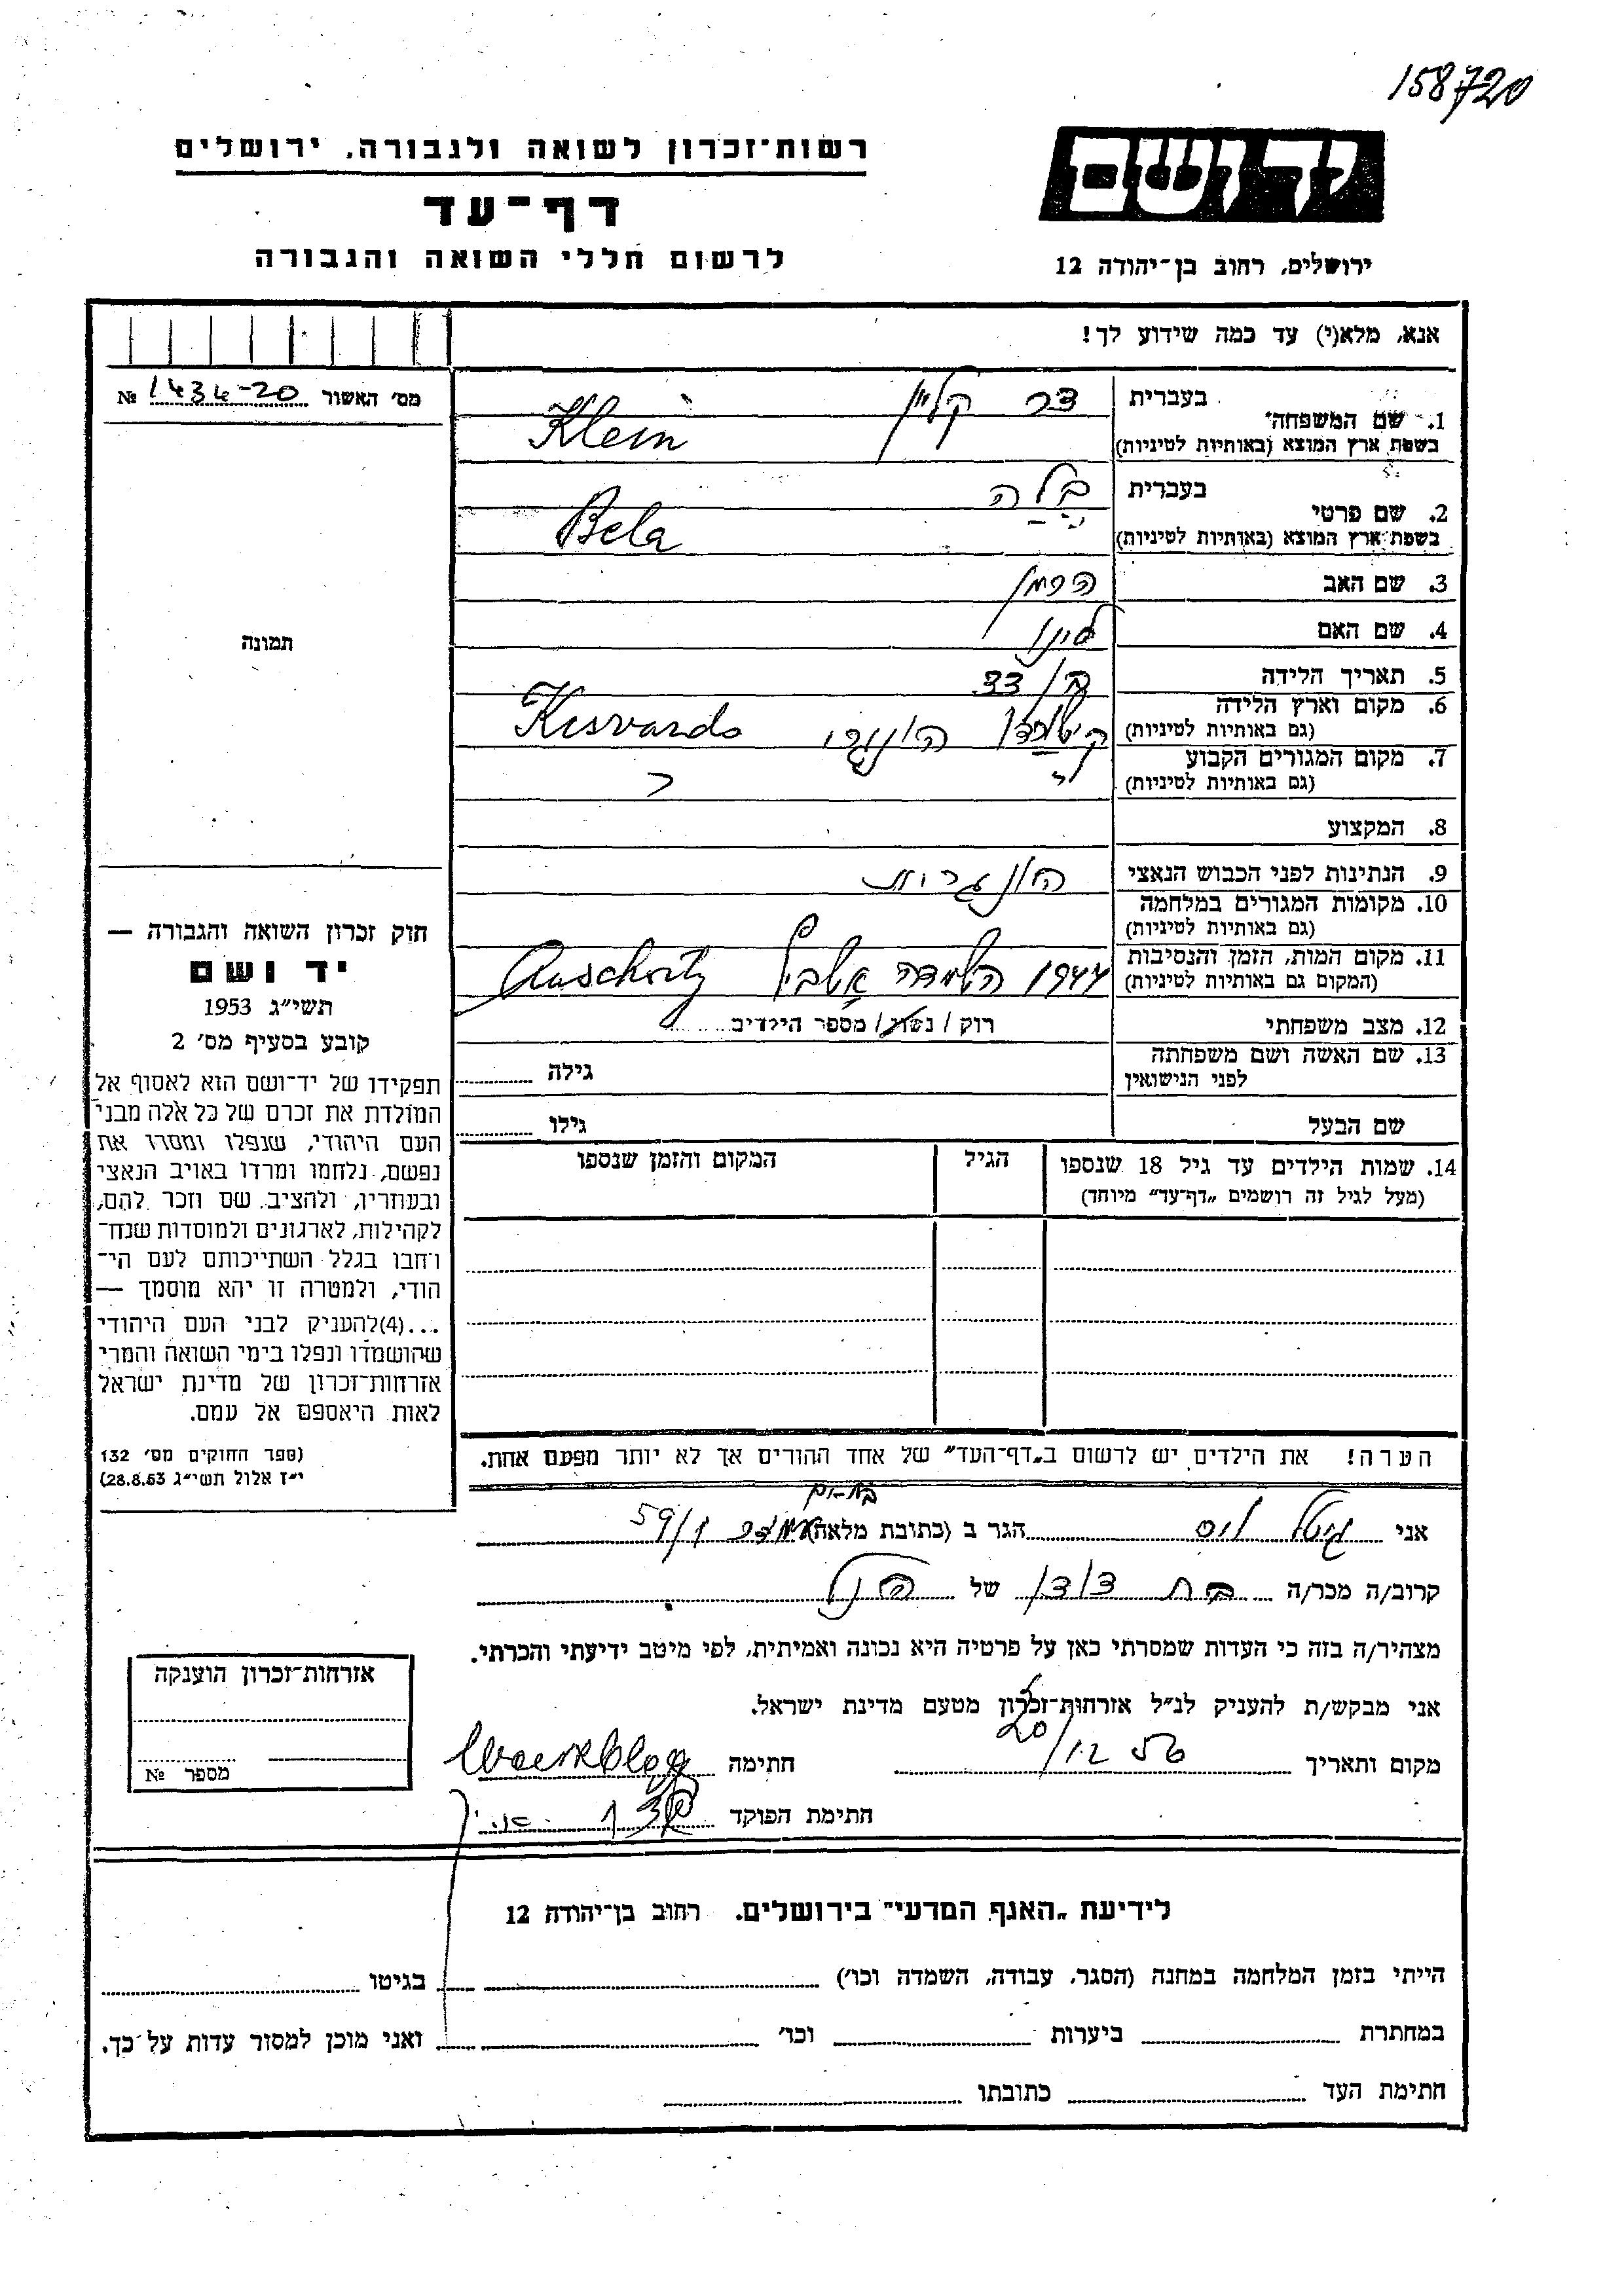 158720
יד ושם
ירושלים, רחוב בן־יהודה 12
רשות־זכרון לשואה ולגבורה, ירושלים
דף־עד
לרשום חללי השואה והגבורה
אנא, מלא(י) עד כמה שידוע לך!
מס' האשור 1434-20 №
1. שם המשפחה בעברית דר קליין
בשפת ארץ המוצא (באותיות לטיניות) Klein
2. שם פרטי בעברית בלה
בשפת ארץ המוצא (באותיות לטיניות) Bela
3. שם האב הרמן
4. שם האם
5. תאריך הלידה
6. מקום וארץ הלידה
(גם באותיות לטיניות) Kisvarda
7. מקום המגורים הקבוע
(גם באותיות לטיניות)
8. המקצוע
9. הנתינות לפני הכבוש הנאצי הונגרית
10. מקומות המגורים במלחמה
(גם באותיות לטיניות)
11. מקום המות, הזמן והנסיבות
(המקום גם באותיות לטיניות) 1944 השמדה
12. מצב משפחתי רוק / נשוי / מספר הילדים
13. שם האשה ושם משפחתה
לפני הנישואין גילה
שם הבעל גילו
14. שמות הילדים עד גיל 18 שנספו הגיל המקום והזמן שנספו
(מעל לגיל זה רושמים „דף־עד" מיוחד)
הערה! את הילדים יש לרשום ב„דף־העד" של אחד ההורים אך לא יותר מפעם אחת.
תמונה
חוק זכרון השואה והגבורה —
יד ושם
תשי"ג 1953
קובע בסעיף מס' 2
תפקידו של יד־ושם הוא לאסוף אל
המולדת את זכרם של כל אלה מבני
העם היהודי, שנפלו ומסרו את
נפשם, נלחמו ומרדו באויב הנאצי
ובעוזריו, ולהציב שם וזכר להם,
לקהילות, לארגונים ולמוסדות שנח־
רחבו בגלל השתייכותם לעם הי־
הודי, ולמטרה זו יהא מוסמך —
...(4)להעניק לבני העם היהודי
שהושמדו ונפלו בימי השואה והמרי
אזרחות־זכרון של מדינת ישראל
לאות היאספם אל עמם.
(ספר החוקים מס' 132
י"ז אלול תשי"ג 28.8.53)
בת-ים
אני הגר ב (כתובת מלאה) 59/1
קרוב/ה מכר/ה בת דוד של הנ"ל
מצהיר/ה בזה כי העדות שמסרתי כאן על פרטיה היא נכונה ואמיתית, לפי מיטב ידיעתי והכרתי.
אני מבקש/ת להעניק לנ"ל אזרחות־זכרון מטעם מדינת ישראל.
מקום ותאריך 20/12 56 חתימה
חתימת הפוקד
אזרחות־זכרון הוענקה
מספר №
לידיעת „האגף המדעי" בירושלים. רחוב בן־יהודה 12
הייתי בזמן המלחמה במחנה (הסגר, עבודה, השמדה וכו') בגיטו
במחתרת ביערות וכו' ואני מוכן למסור עדות על כך.
חתימת העד כתובתו